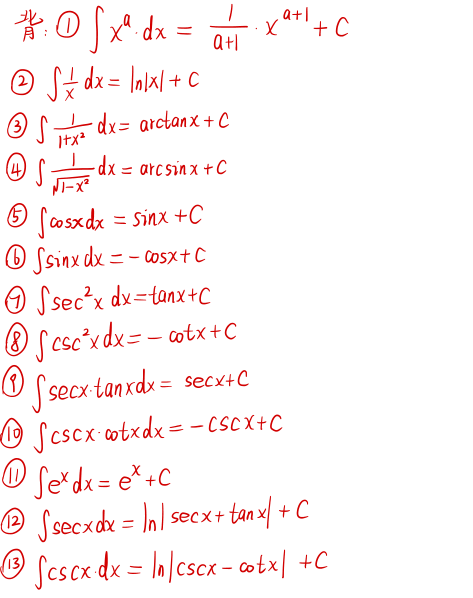 背: ① ∫ xᵃ·dx = 1/(a+1) · xᵃ⁺¹ + C
② ∫ 1/x dx = ln|x| + C
③ ∫ 1/(1+x²) dx = arctanx + C
④ ∫ 1/√(1-x²) dx = arcsinx + C
⑤ ∫cosxdx = sinx + C
⑥ ∫sinxdx = -cosx + C
⑦ ∫sec²x dx = tanx + C
⑧ ∫csc²xdx = -cotx + C
⑨ ∫secx·tanxdx = secx + C
⑩ ∫cscx·cotxdx = -cscx + C
⑪ ∫eˣdx = eˣ + C
⑫ ∫secxdx = ln|secx + tanx| + C
⑬ ∫cscx·dx = ln|cscx - cotx| + C